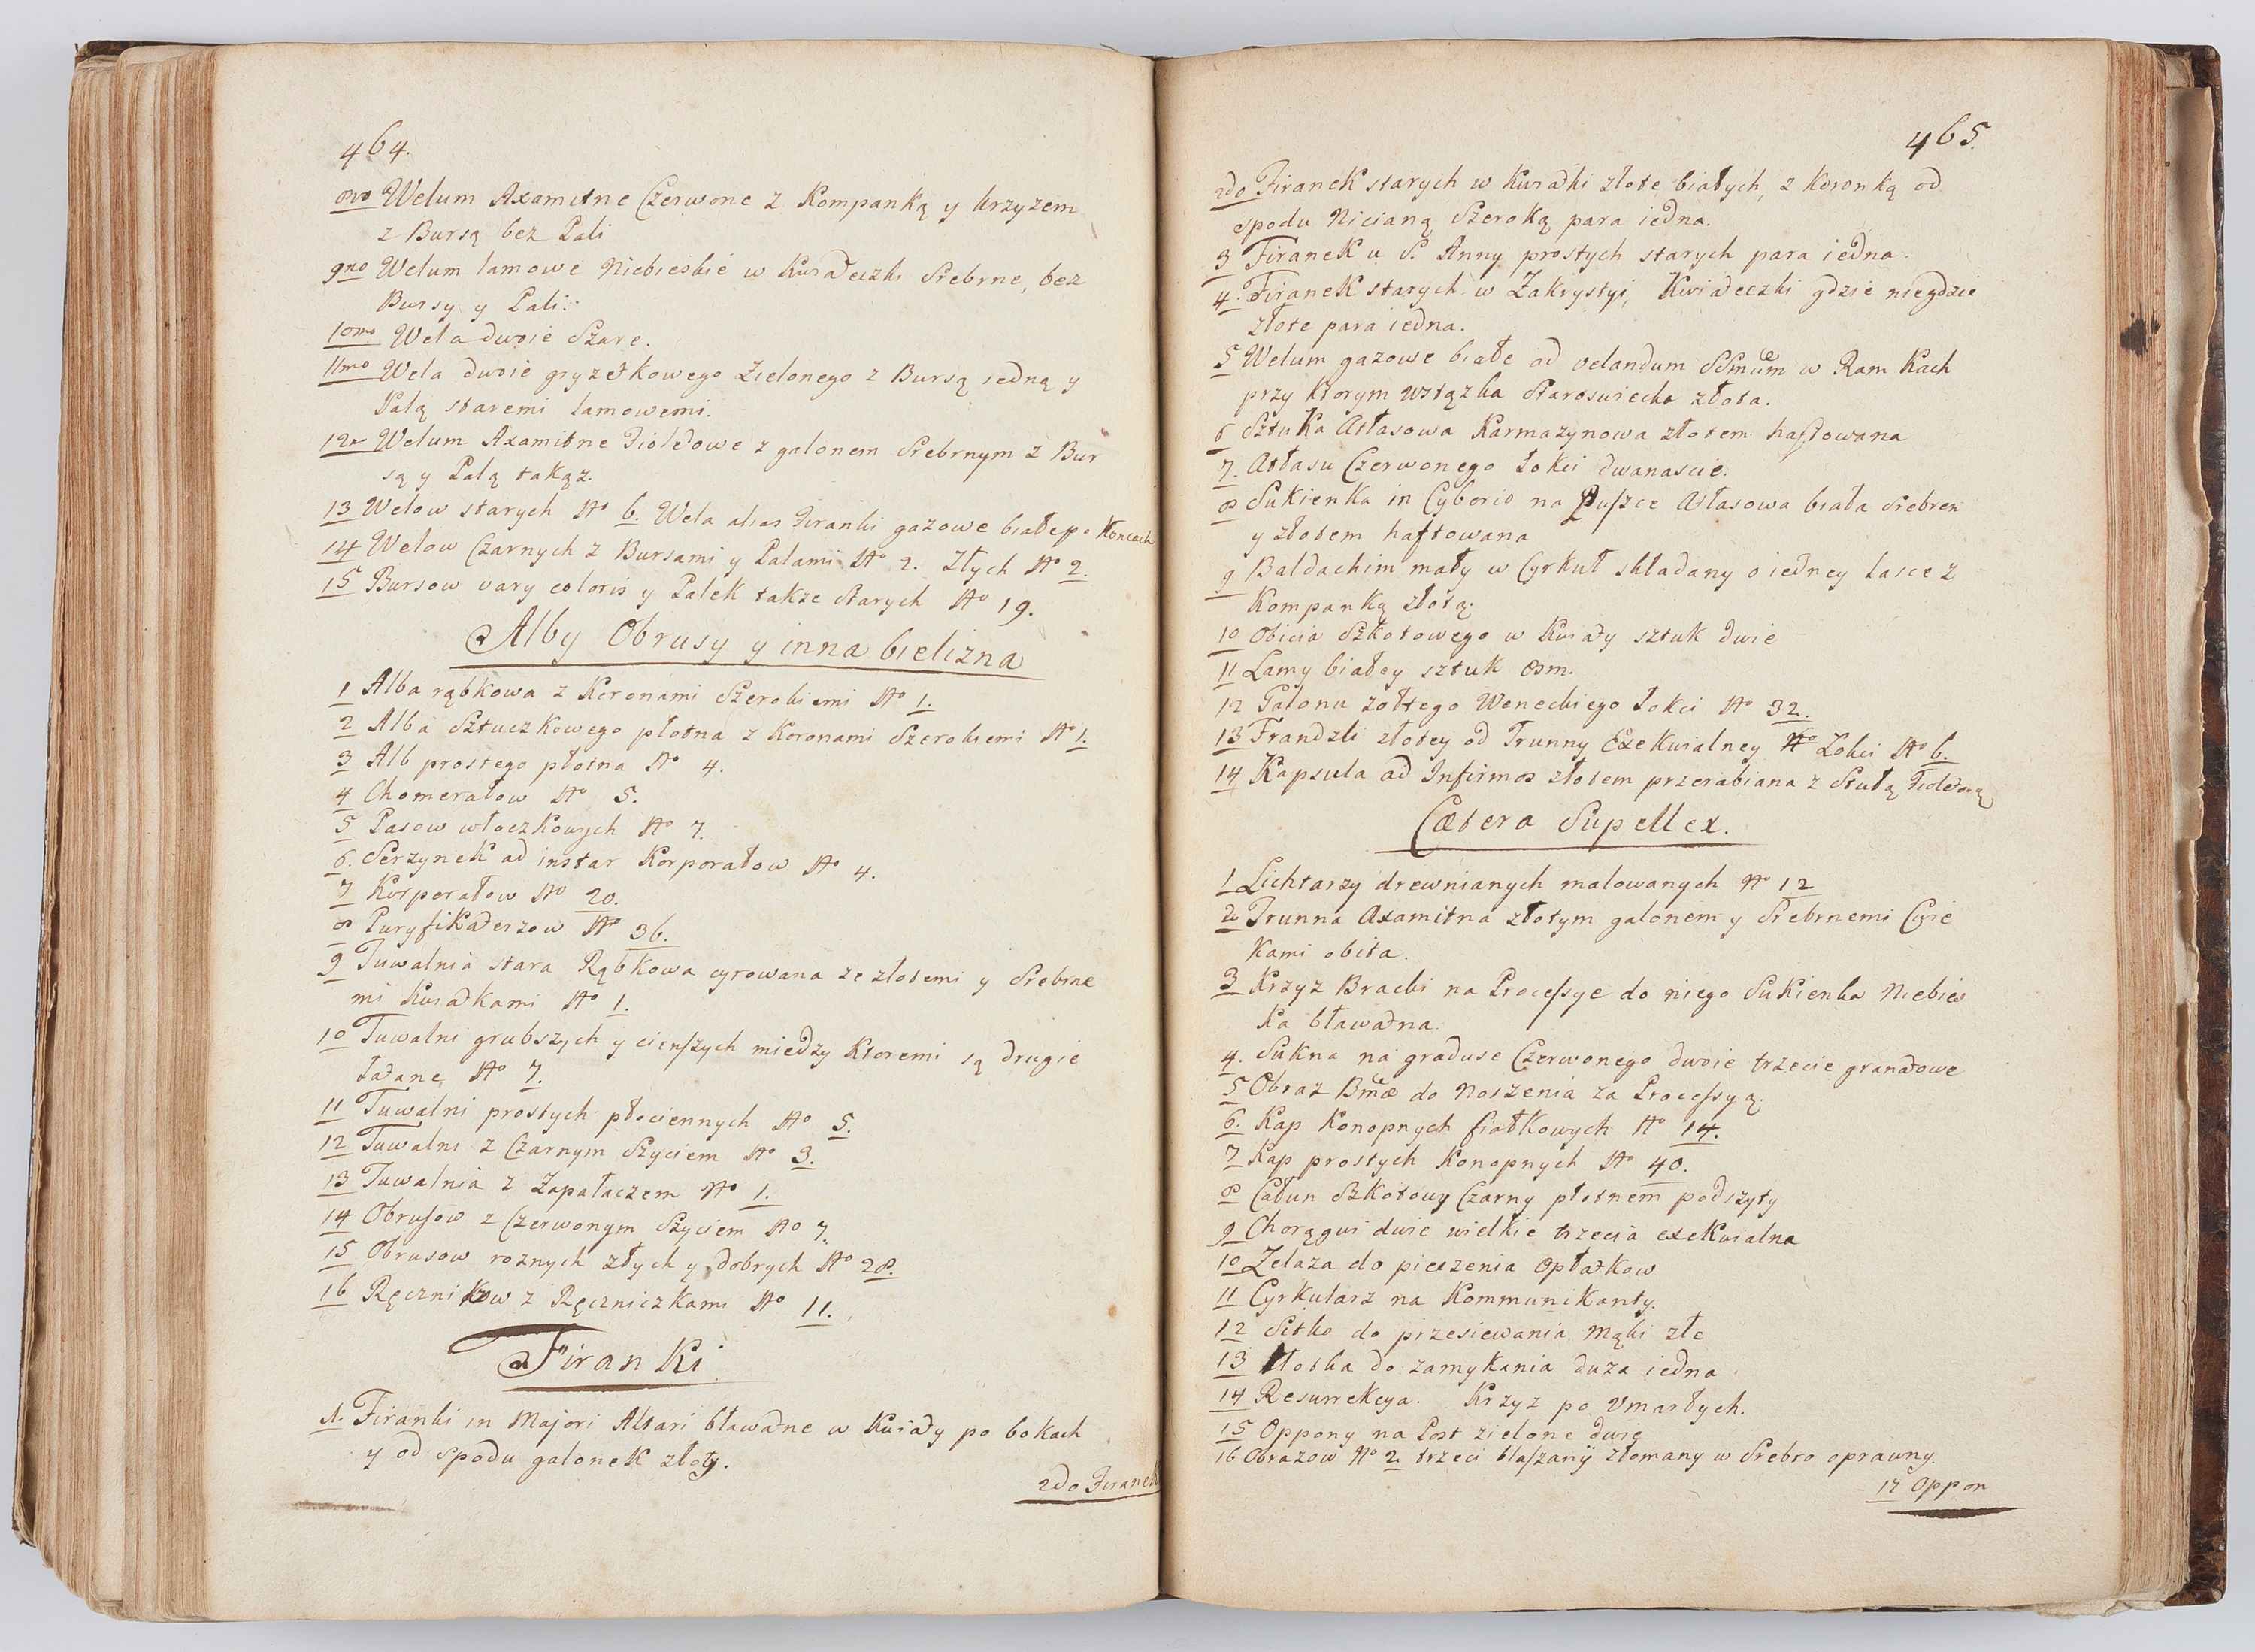 464.
8vo Welum Axamitne Czerwone z Kompanką y krzyzem
z Bursą bez Pali
9no Welum lamowe Niebieskie w kwiateczki srebrne, bez
Bursy y Pali:
10mo Wela dwoie Szare.
11mo Wela dwoie gryzetkowego Zielonego z Bursą iedną y
Palą staremi lamowemi.
12 Welum Axamitne Fioletowe z galonem srebrnym z Bur
są y Palą takąz.
13 Welow starych No 6. Wela alias Firanki gazowe białe po Koncach
14 Welow Czarnych z Bursami y Palami No 2. Złych No 2.
15 Bursow vary coloris y Palek takze starych No 19.
Alby Obrusy y inna bielizna
1 Alba rąbkowa z Koronami Szerokiemi No 1.
2 Alba Sztuczkowego płotna z Koronami Szerokiemi No 1.
3 Alb prostego płotna No 4.
4 Chomerałow No 5.
5 Pasow włoczkowych No 7.
6. Serzynek ad instar Korporałow No 4.
7 Korporałow No 20.
8 Puryfikaterzow No 36.
9 Tuwalnia stara Rąbkowa cyrowana ze złotemi y srebrne
mi kwiatkami No 1.
10 Tuwalni grubszych y cienszych miedzy Ktoremi są drugie
łatane No 7.
11 Tuwalni prostych płociennych No 5.
12 Tuwalni z Czarnym Szyciem No 3.
13 Tuwalnia z Zapałaczem No 1.
14 Obrusow z Czerwonym Szyciem No 7.
15 Obrusow roznych złych y dobrych No 28.
16 Ręcznikow z Ręczniczkami No 11.
Firanki
1. Firanki in Majori Altari bławatne w Kwiaty po bokach
y od spodu galonek złoty.
2do Firanek
465.
2do Firanek starych w kwiatki złote białych, z koronką od
spodu Nicianą Szeroką para iedna.
3 Firanek u S. Anny prostych starych para iedna.
4. Firanek starych w Zakrystyi, Kwiateczki gdzie niegdzie
złote para iedna.
5 Welum gazowe białe ad velandum SSmum w Ram Kach
przy ktorym wstązka staroswiecka złota.
6 Sztuka Atłasowa Karmazynowa złotem haftowana
7. Atłasu Czerwonego Łokci dwanascie.
8 Sukienka in Cyborio na Puszce Atłasowa biała srebrem
y złotem haftowana
9 Baldachim mały w Cyrkuł składany o iedney lasce z
Kompanką złotą.
10 Obicia Szkotowego w Kwiaty sztuk dwie
11 Lamy białey sztuk osm.
12 Galonu zołtego Weneckiego łokci No 32.
13 Frandzli złotey od Trunny Exekwialney Łokci No 6.
14 Kapsula ad Infirmos złotem przerabiana z Stułą Fioletową
Cætera Supellex.
1 Lichtarzy drewnianych malowanych No 12
2 Trunna Axamitna złotym galonem y srebrnemi Cwie
Kami obita.
3 Krzyz Bracki na Processye do niego Sukienka Niebies
Ka bławatna.
4. Sukna na graduse Czerwonego dwoie trzecie granatowe
5 Obraz Bmæ do Noszenia za Processyą.
6. Kap Konopnych fiałkowych No 14.
7 Kap prostych Konopnych No 40.
8 Całun Szkotowy Czarny płotnem podszyty
9 Chorągwi dwie wielkie trzecia exekwialna
10 Zelaza do pieczenia Opłatkow
11 Cyrkularz na Kommunikanty.
12 Sitko do przesiewania mąki złe
13 Kłotka do zamykania duza iedna
14 Resurrekcya. Krzyz po Vmarłych.
15 Oppony na Post zielone dwie
16 Obrazow No 2 trzeci blaszany złomany w srebro oprawny.
17 Oppon